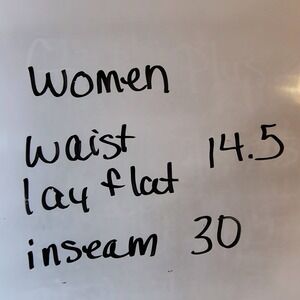 Women
waist
lay flat 14.5
inseam 30